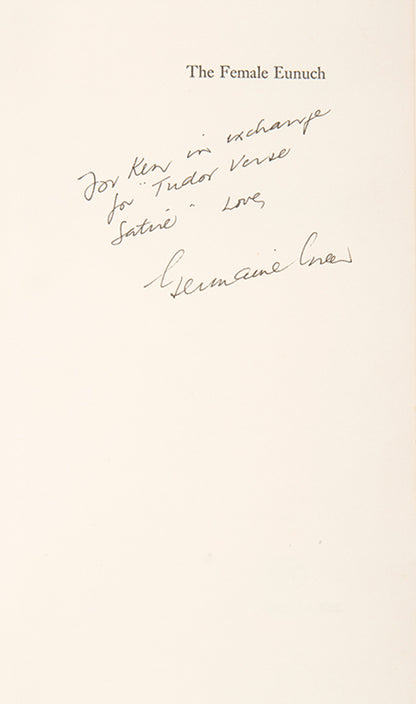 The Female Eunuch
For Ken in exchange
for "Tudor Verse
Satire" Love,
Germaine Greer